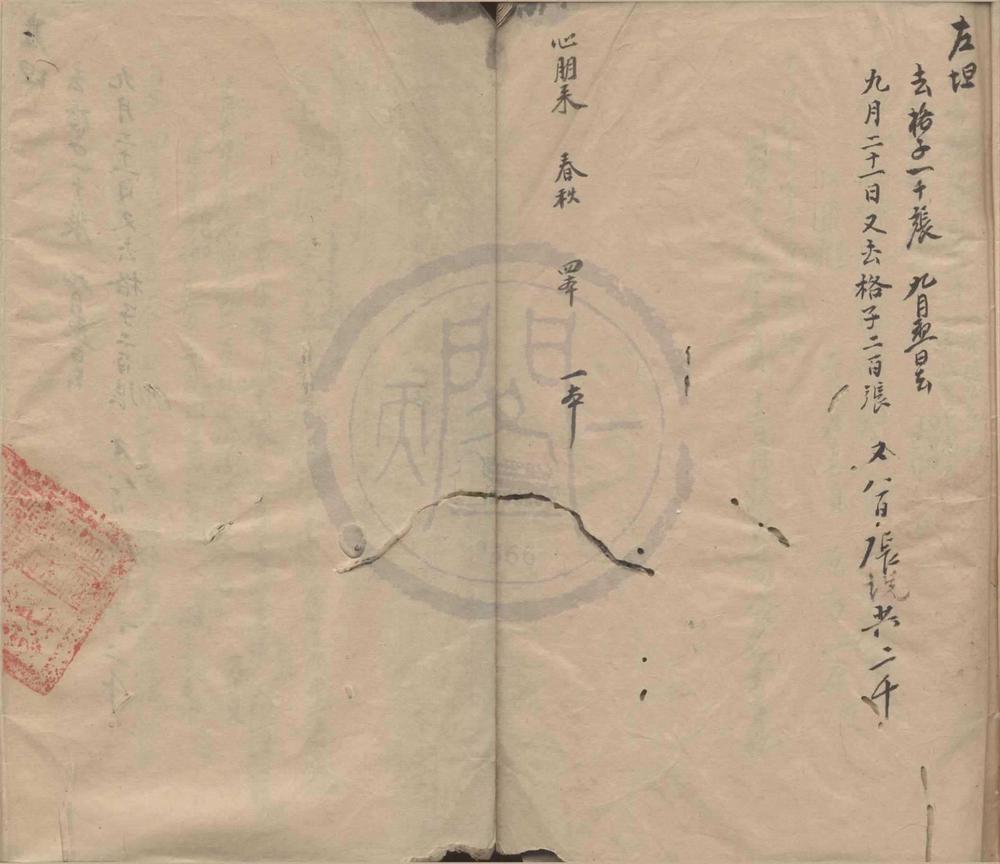 左坦
去格子一千張 九月初四日去
九月二十一日又去格子二百張 又八百張説共二千
心朋来 春秋 四本 一本